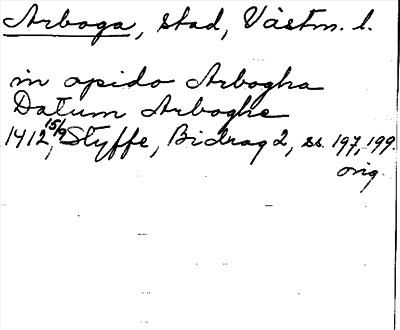 Arboga, stad, Västm. l.
in opido Arbogha
Datum Arboghe
1412 15/9, Styffe, Bidrag 2, ss. 197, 199.
orig.